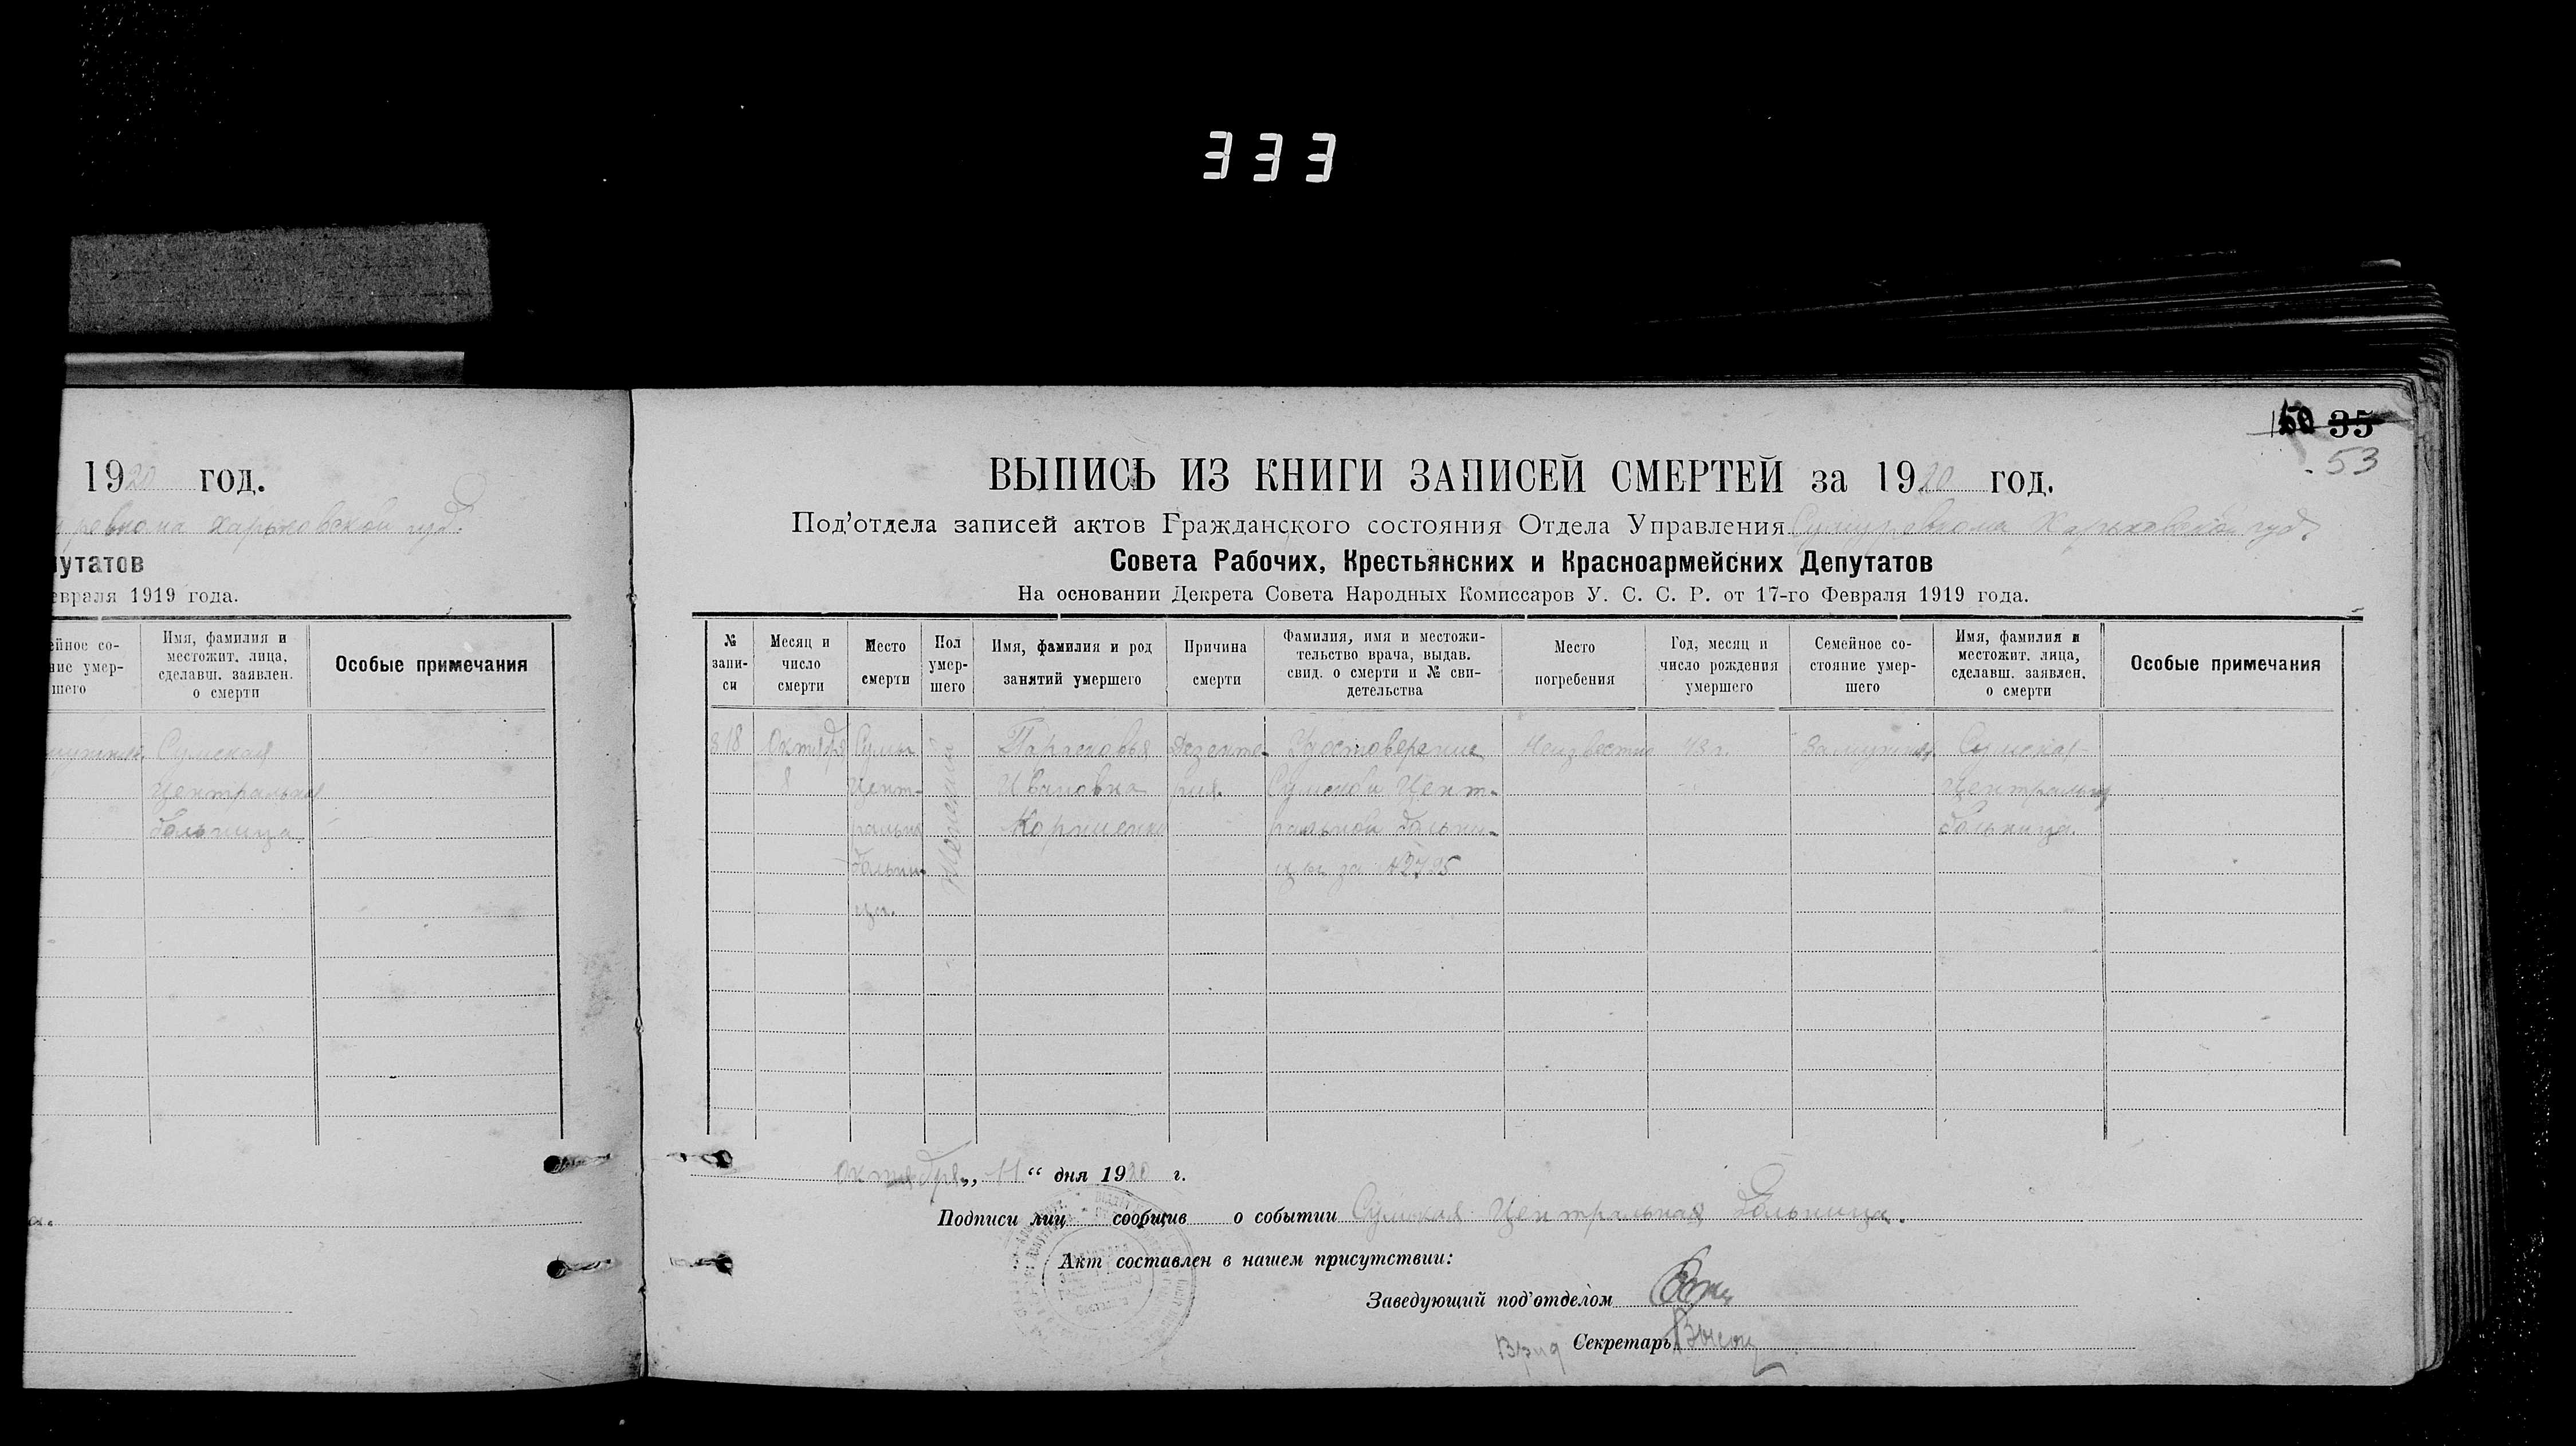 333
1920 год.
ревкома Харьковской губ.
путатов
евраля 1919 года.
ейное со-
ние умер-
шего
Имя, фамилия и
местожит. лица,
сделавш. заявлен.
о смерти
Особые примечания
Сумская
Центральная
больница.
50 35
53
ВЫПИСЬ ИЗ КНИГИ ЗАПИСЕЙ СМЕРТЕЙ за 1920 год.
Под'отдела записей актов Гражданского состояния Отдела Управления Сумуревкома Харьковской губ.
Совета Рабочих, Крестьянских и Красноармейских Депутатов
На основании Декрета Совета Народных Комиссаров У. С. С. Р. от 17-го Февраля 1919 года.
№
запи-
си
Месяц и
число
смерти
Место
смерти
Пол
умер-
шего
Имя, фамилия и род
занятий умершего
Причина
смерти
Фамилия, имя и местожи-
тельство врача, выдав.
свид. о смерти и № сви-
детельства
Место
погребения
Год, месяц и
число рождения
умершего
Семейное со-
стояние умер-
шего
Имя, фамилия и
местожит. лица,
сделавш. заявлен.
о смерти
Особые примечания
818
Октября
8
Сумы
Цент-
ральна
больни-
ца.
Женский
Парасковья
Ивановна
Корниенко
Дезенте-
рия.
Удостоверение
Сумской Цент-
ральной больни-
цы за №2795
Неизвестно
43 г.
Замужняя
Сумская
Центральна
больница.
Октября „ 11 “ дня 1920 г.
Подписи лиц сообщив о событии Сумская Центральная больница.
Акт составлен в нашем присутствии:
Заведующий под'отделом
Врид Секретарь